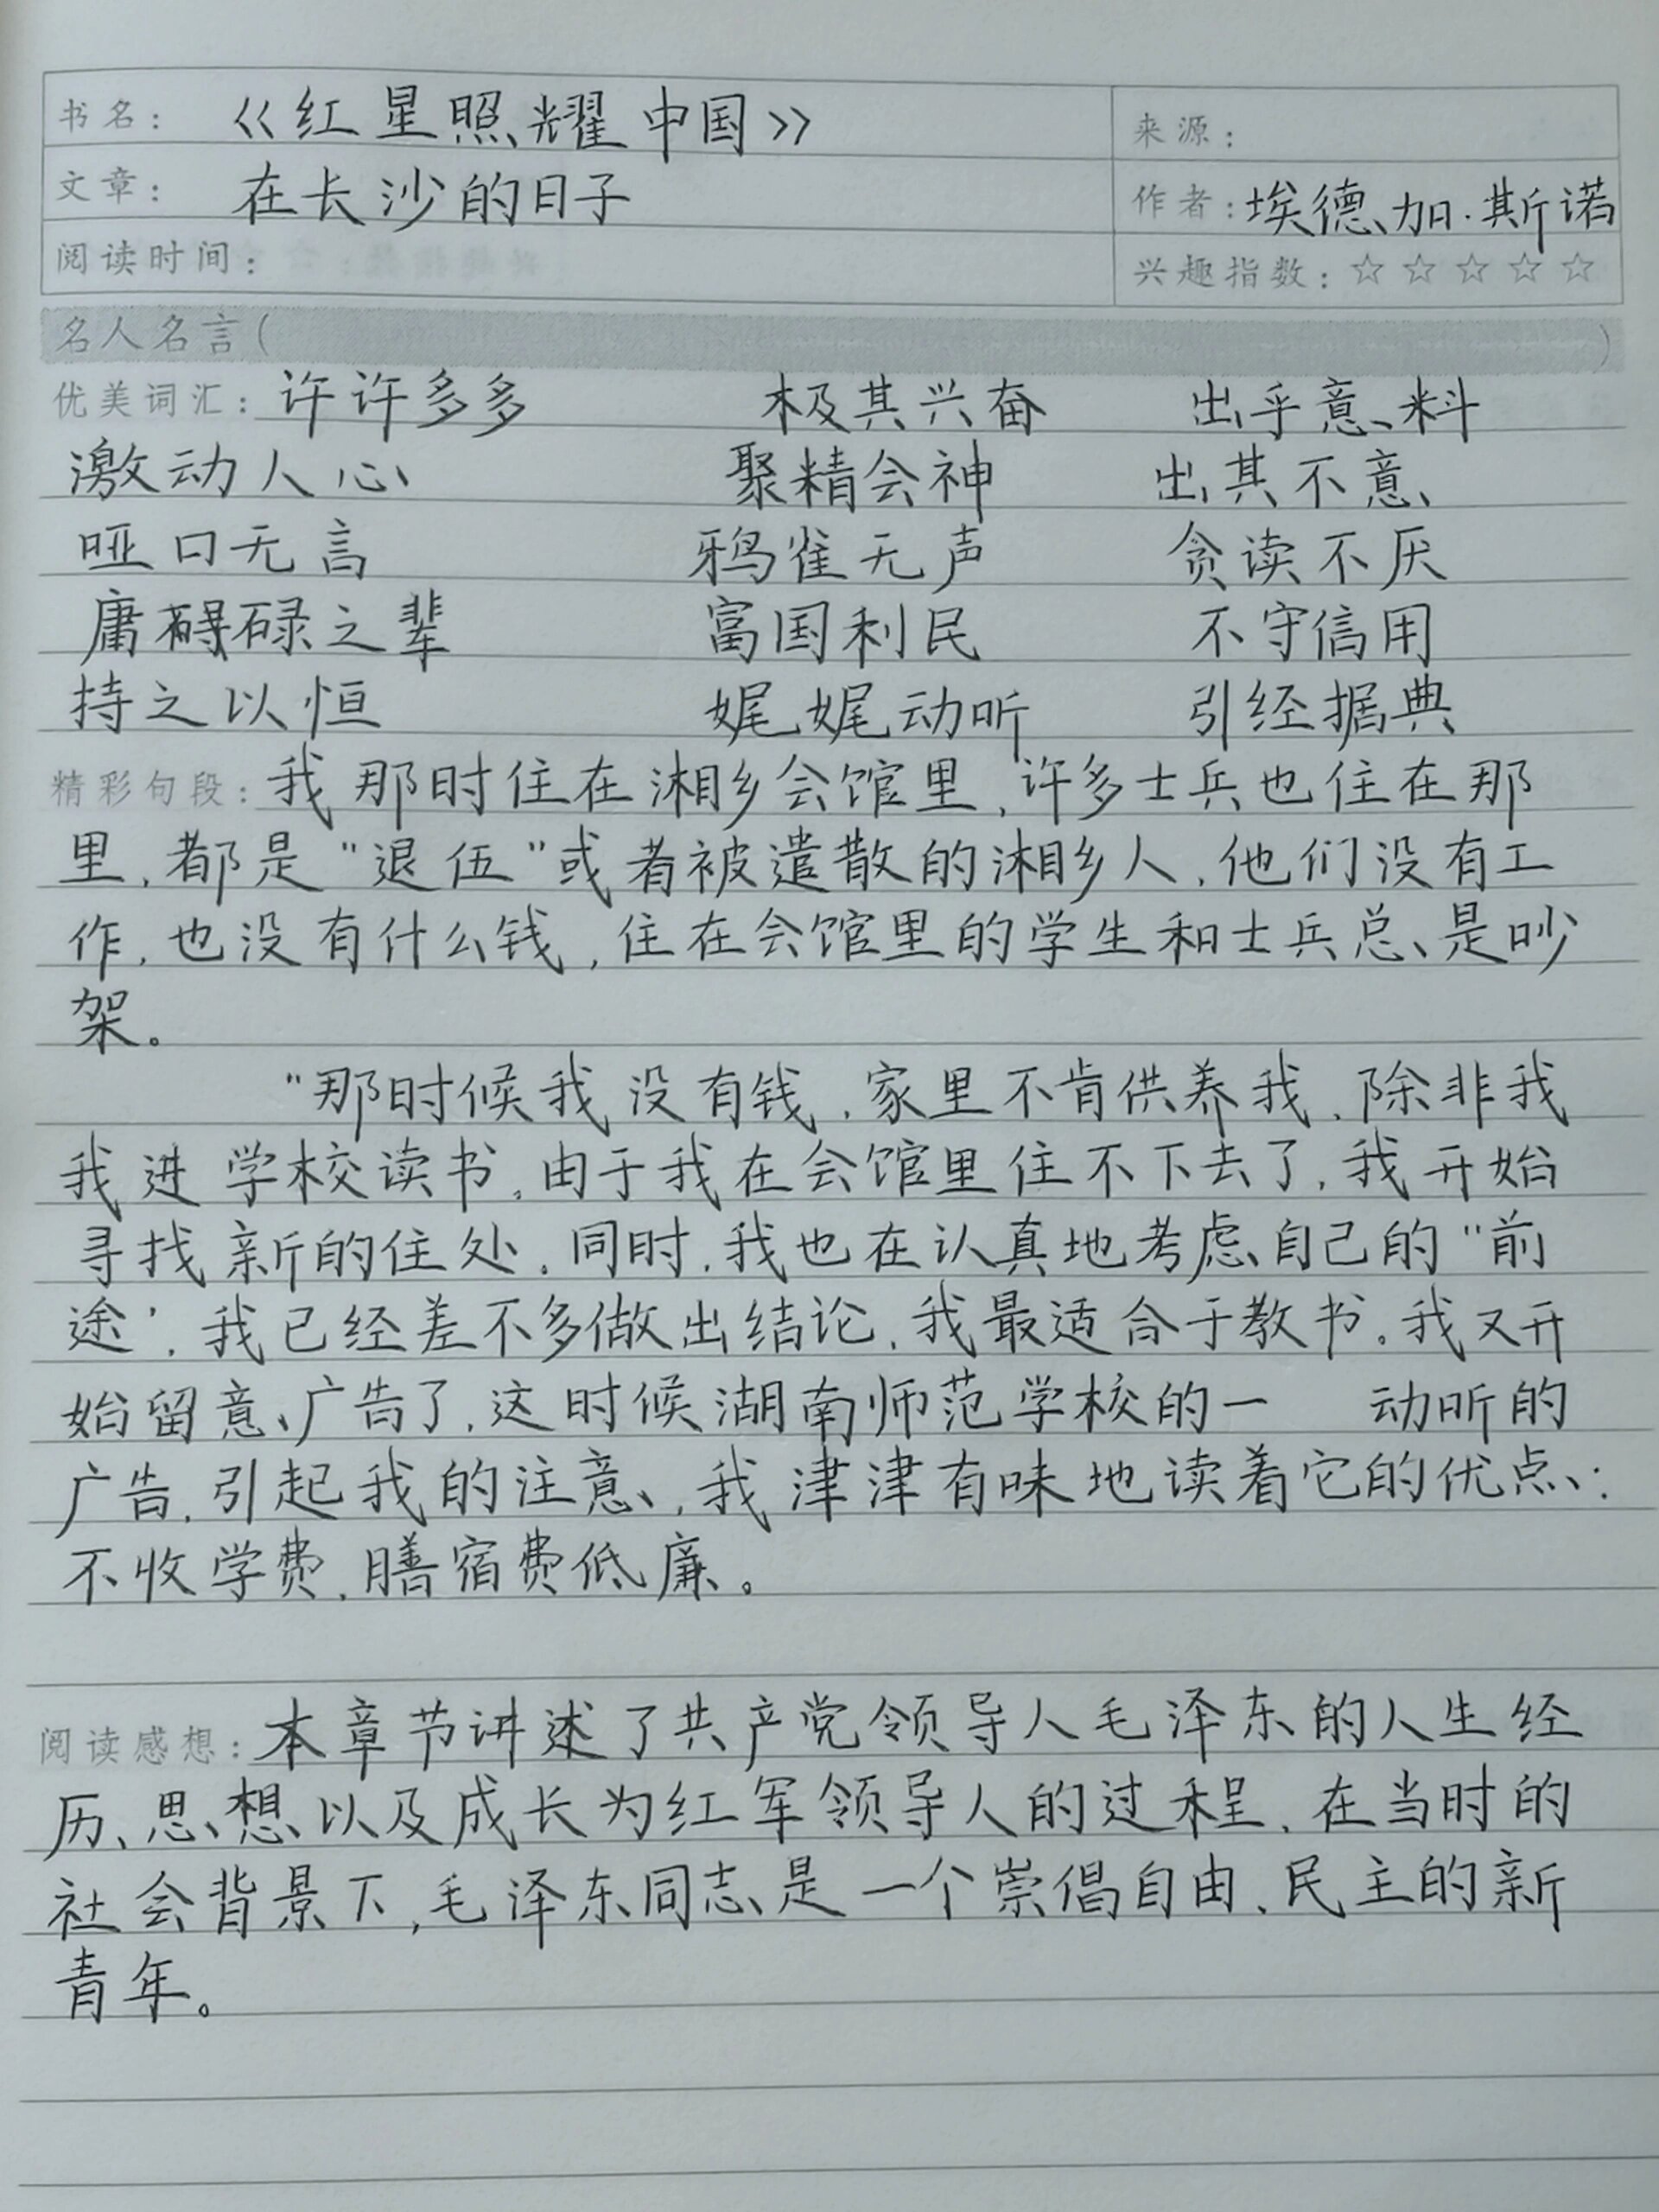 书名： 《红星照耀中国》 来源：
文章： 在长沙的日子 作者：埃德加·斯诺
阅读时间： 兴趣指数：☆☆☆☆☆
名人名言（ ）
优美词汇：许许多多 极其兴奋 出乎意料
激动人心 聚精会神 出其不意
哑口无言 鸦雀无声 贪读不厌
庸碌之辈 富国利民 不守信用
持之以恒 娓娓动听 引经据典
精彩句段：我那时住在湘乡会馆里，许多士兵也住在那
里，都是"退伍"或者被遣散的湘乡人，他们没有工
作，也没有什么钱，住在会馆里的学生和士兵总是吵
架。
"那时候我没有钱，家里不肯供养我，除非我
我进学校读书，由于我在会馆里住不下去了，我开始
寻找新的住处。同时，我也在认真地考虑自己的"前
途'，我已经差不多做出结论，我最适合于教书。我又开
始留意广告了，这时候湖南师范学校的一 动听的
广告，引起我的注意，我津津有味地读着它的优点：
不收学费，膳宿费低廉。
阅读感想：本章节讲述了共产党领导人毛泽东的人生经
历、思想以及成长为红军领导人的过程，在当时的
社会背景下，毛泽东同志是一个崇倡自由、民主的新
青年。